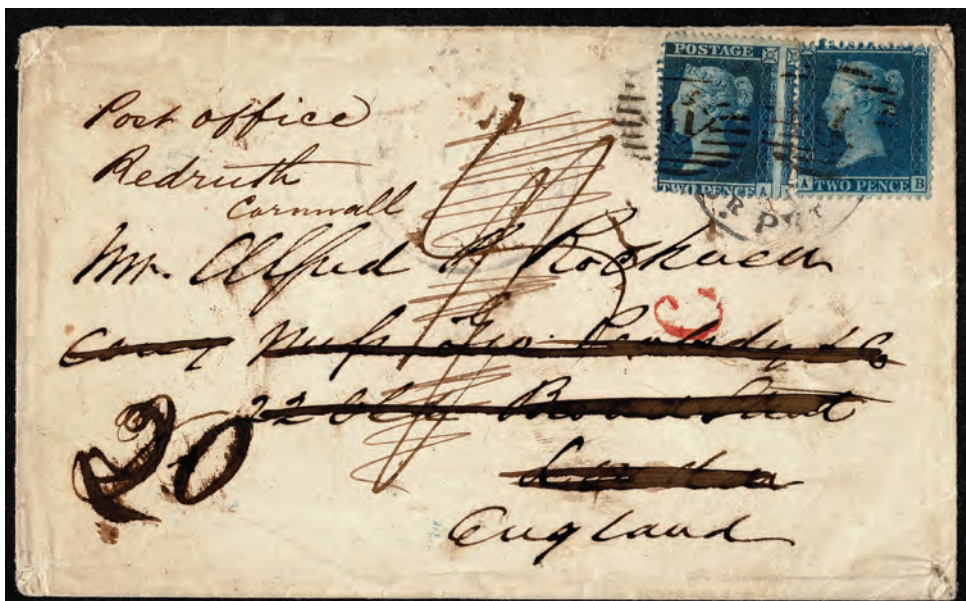 POSTAGE
POSTAGE
TWO PENCE A
A TWO PENCE B
Post office
Redruth
Cornwall
Mr. Alfred P Rockwell
Care Messrs Geo Peabody & Co
22 Old Broad Street
London
England
20
C